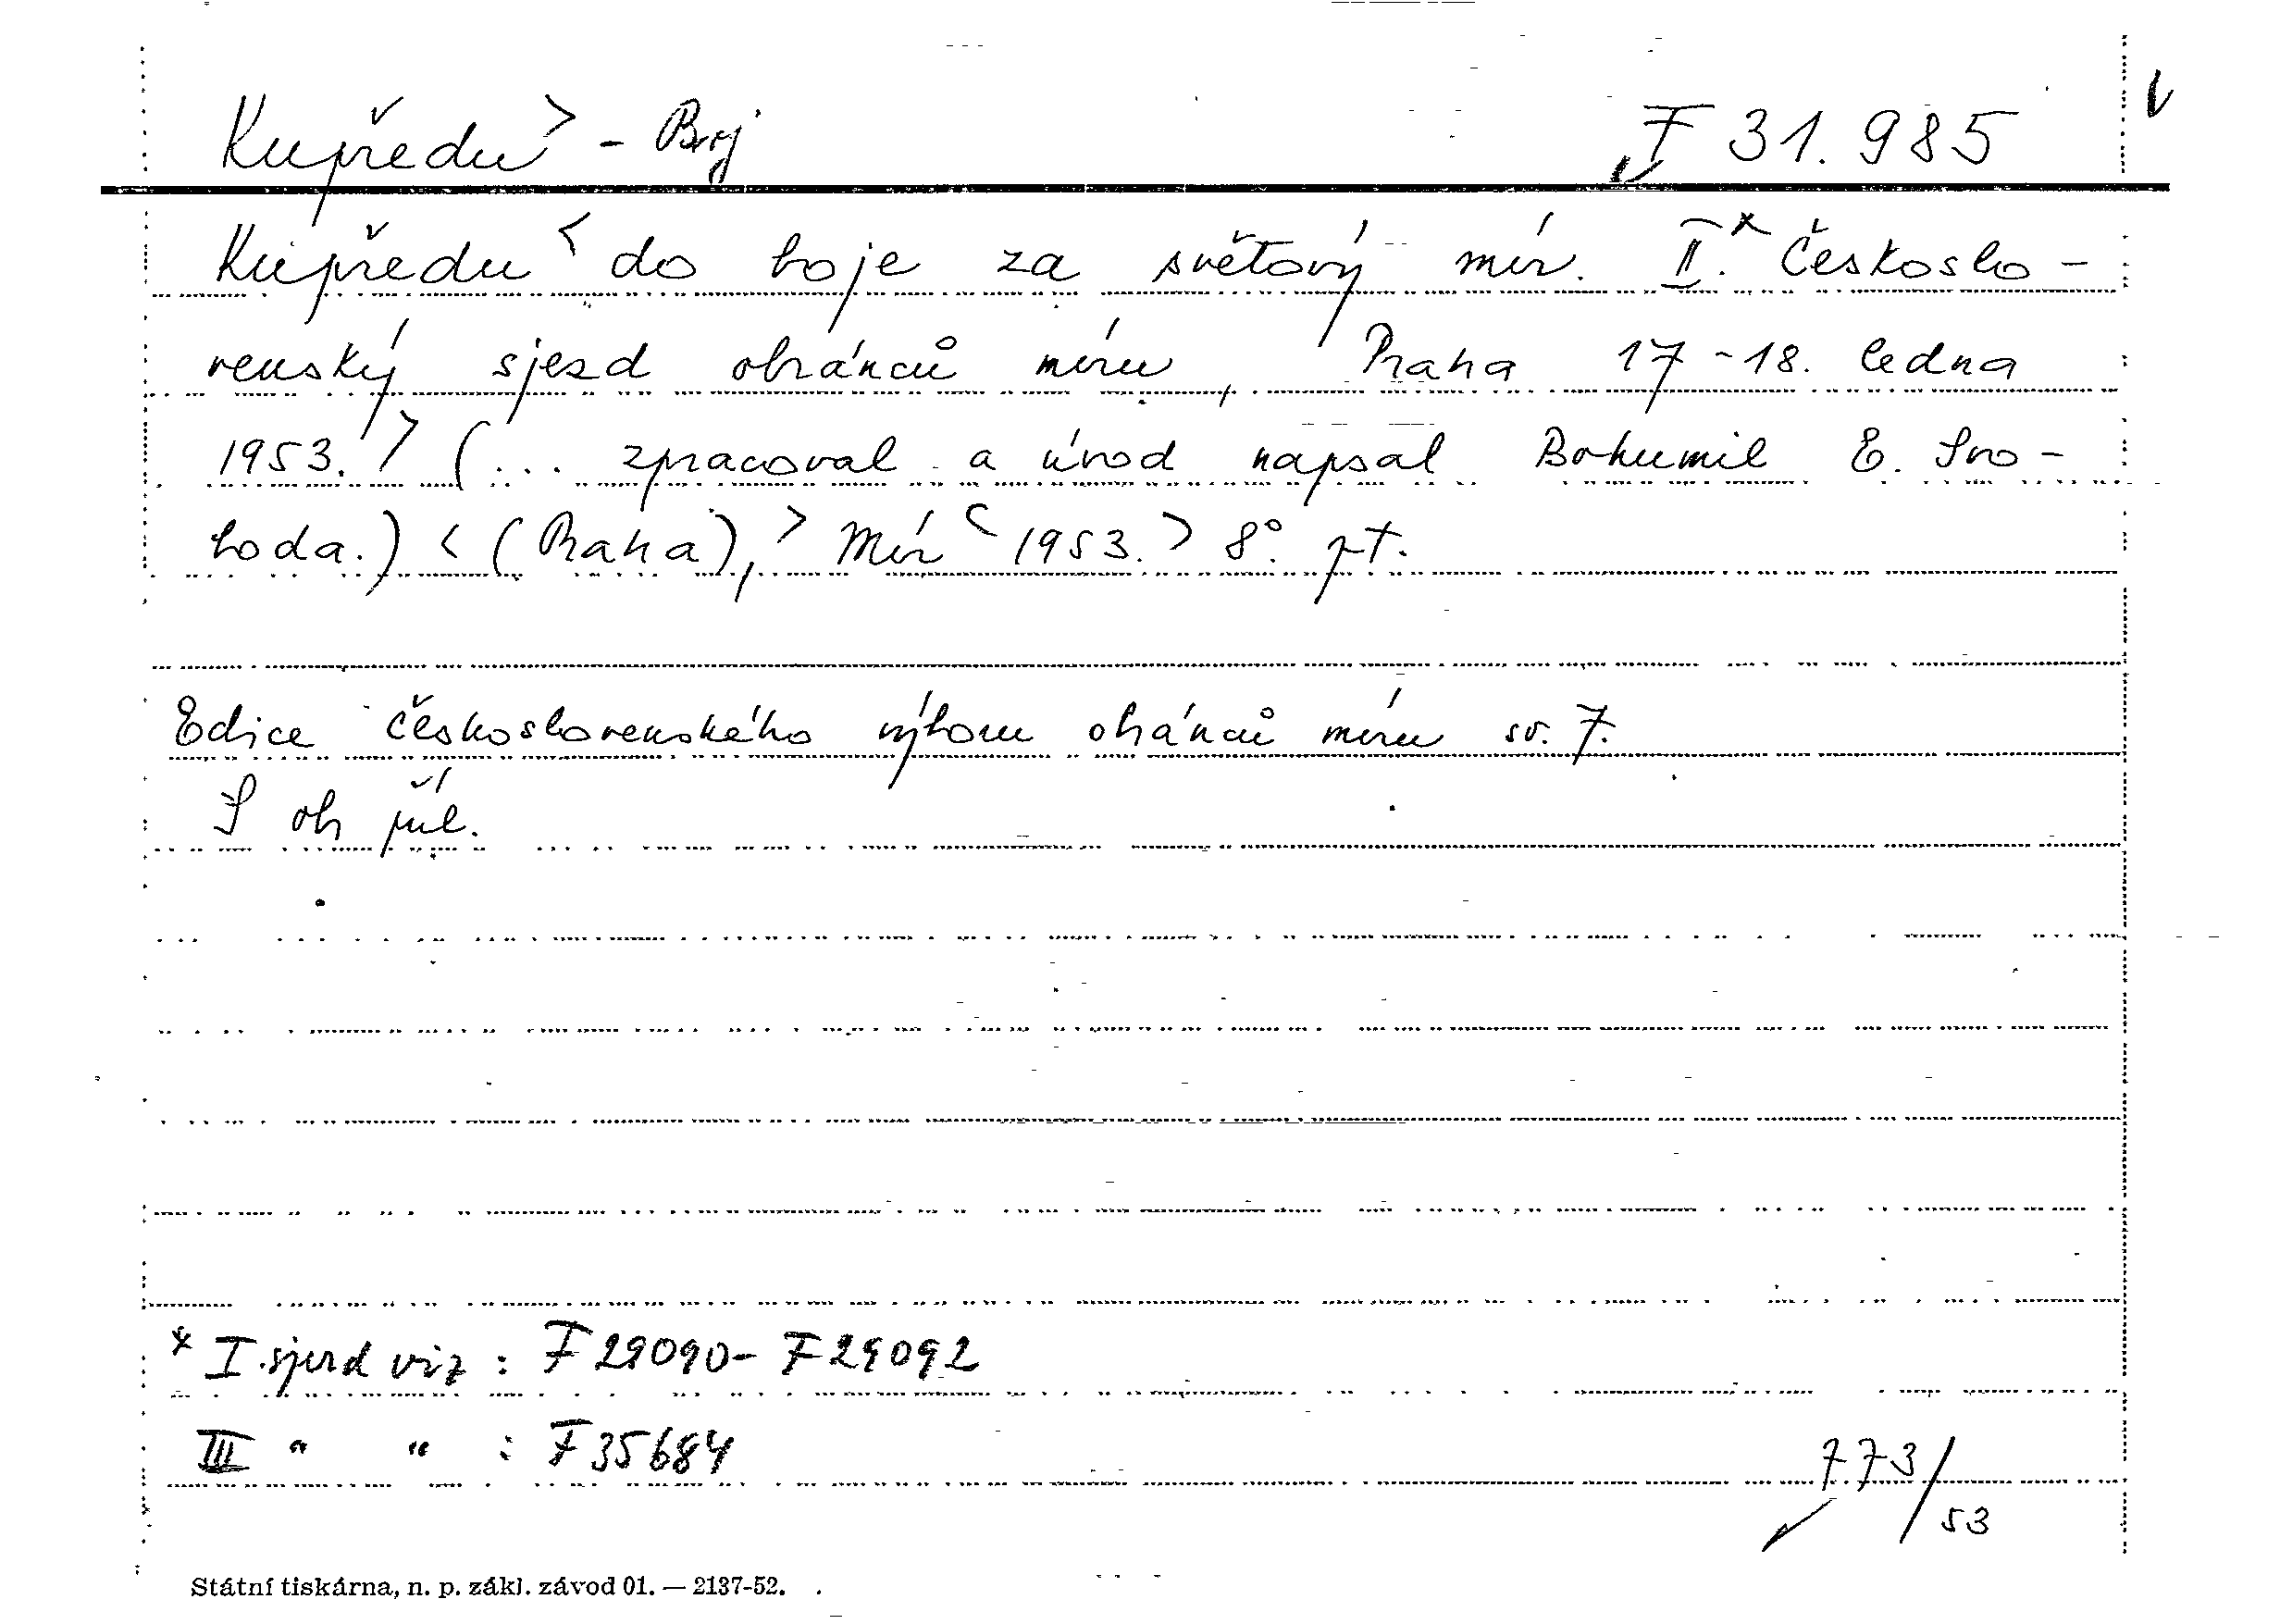 Kupředu > - Boj F 31.985
Kupředu < do boje za světový mír. II.* Českoslo-
venský sjezd obránců míru, Praha 17-18. ledna
1953. > (... zpracoval a úvod napsal Bohumil E. Svo-
boda.) < (Praha), > Mír < 1953. > 8°. pt.
Edice československého výboru obránců míru sv. 7.
S ob příl.
* I. sjezd viz : F 29090 - F 29092
III " " : F 35684
773/53
Státní tiskárna, n. p. zákl. závod 01. — 2137-52.